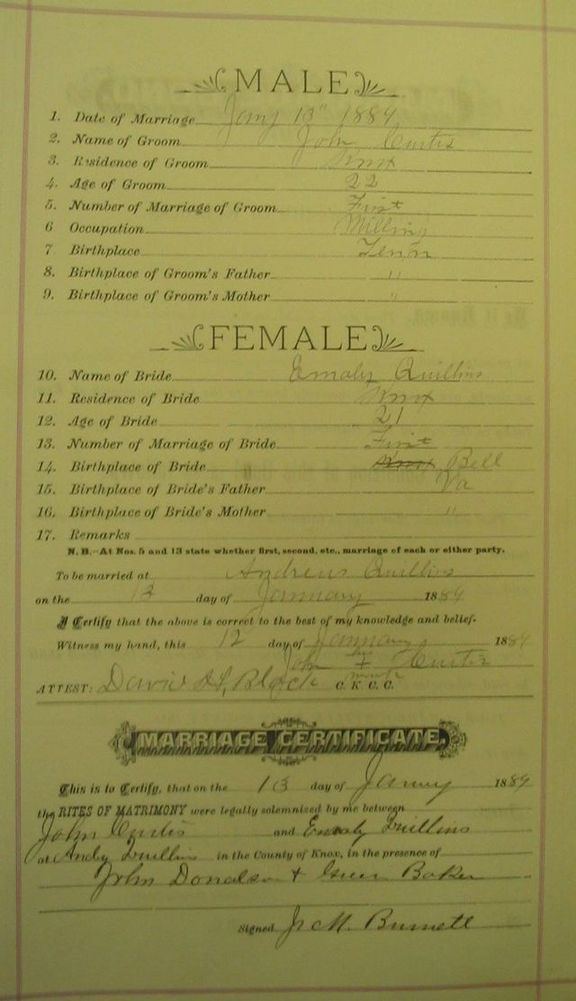 MALE
1. Date of Marriage Jany 13th 1889
2. Name of Groom John Curtis
3. Residence of Groom Knox
4. Age of Groom 22
5. Number of Marriage of Groom First
6 Occupation Milling
7 Birthplace Tenn
8. Birthplace of Groom's Father "
9. Birthplace of Groom's Mother "
FEMALE
10. Name of Bride Emaly Quillins
11. Residence of Bride Knox
12. Age of Bride 21
13. Number of Marriage of Bride First
14. Birthplace of Bride Knox Bell
15. Birthplace of Bride's Father Va
16. Birthplace of Bride's Mother "
17. Remarks
N. B.—At Nos. 5 and 13 state whether first, second, etc., marriage of each or either party.
To be married at Andrew Quillins
on the 13 day of January 1889
I Certify that the above is correct to the best of my knowledge and belief.
Witness my hand, this 12 day of January 1889
John Curtis
ATTEST: David H. Black C. K. C. C.
MARRIAGE CERTIFICATE
This is to Certify, that on the 13 day of Janury 1889
the RITES OF MATRIMONY were legally solemnized by me between
John Curtis and Emaly Quillins
at Andy Quillins in the County of Knox, in the presence of
John Donalson + Green Baker
Signed J. M. Burnett